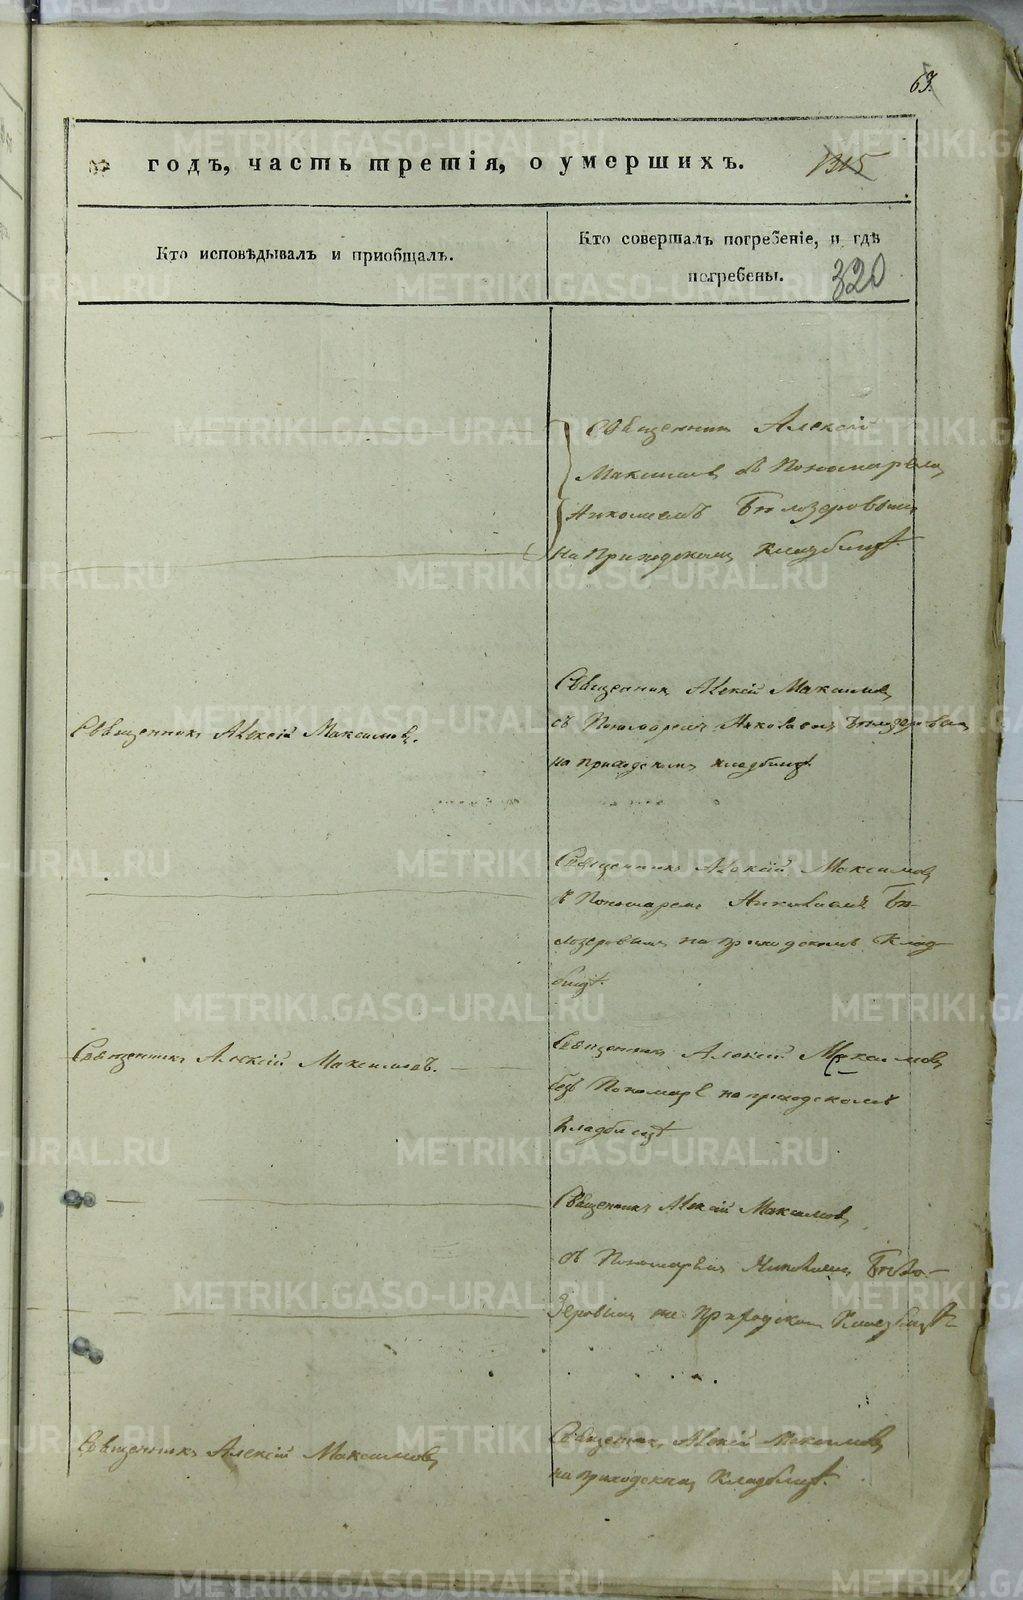 63.
годъ, часть третія, о умершихъ.
1315
Кто исповѣдывалъ и пріобщалъ.
Кто совершалъ погребеніе, и гдѣ
погребены.
320
Священник Алексій
Максимов съ Пономарем
Николаемъ Бѣлозеровым
на Приходском Кладбищѣ.
Священник Алексій Максимов
съ Пономарем Николаем Бѣлозеровым
на приходскомъ кладбищѣ.
Священникъ Алексій Максимов.
Священникъ Алексій Максимов
съ Пономаремъ Николаемъ Бѣ-
лозеровым на приходскомъ Клад-
бищѣ.
Священникъ Алексій Максимовъ.
Священникъ Алексій Максимов
безъ Пономаря на приходскомъ
Кладбищѣ
Священникъ Алексій Максимов
съ Пономарем Николаем Бѣло-
зеровым на Приходском Кладбищѣ
Священникъ Алексій Максимов
Священникъ Алексій Максимов
на приходском Кладбищѣ.
METRIKI.GASO-URAL.RU